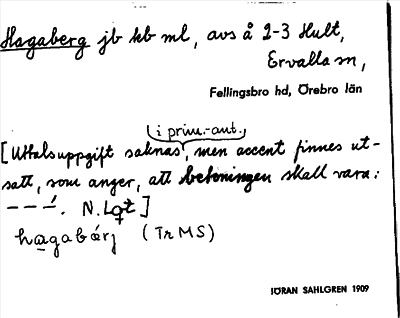 Hagaberg jb kb ml, avs å 2-3 Hult,
Ervalla sn,
Fellingsbro hd, Örebro län
i prim.-ant.,
[Uttalsuppgift saknas, men accent finnes ut-
satt, som anger, att betoningen skall vara:
– – –́. N. Lot]
hagabárj (TrMS)
JÖRAN SAHLGREN 1909